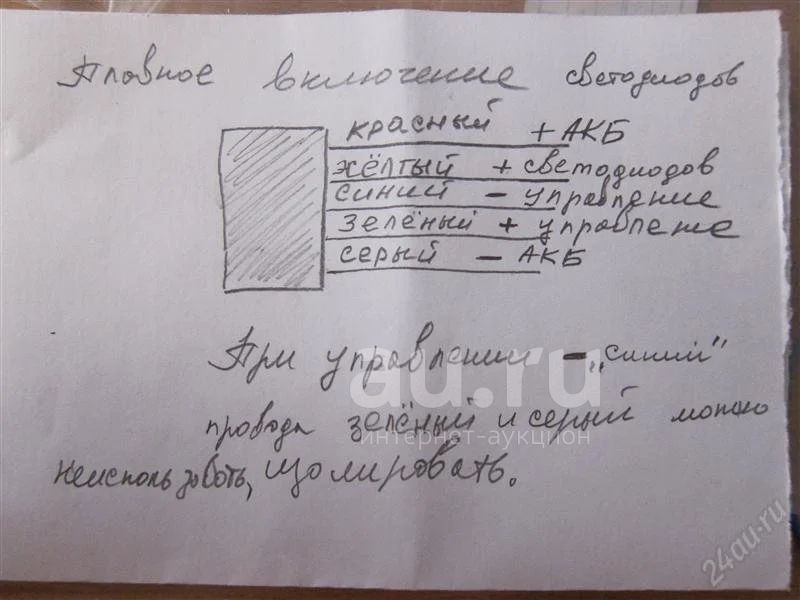 Плавное включение светодиодов
красный + АКБ
жёлтый + светодиодов
синий - управление
зелёный + управление
серый - АКБ
При управлении - "синий"
au.ru
провода зелёный и серый можно
интернет-аукцион
неиспользовать, изолировать.
24au.ru